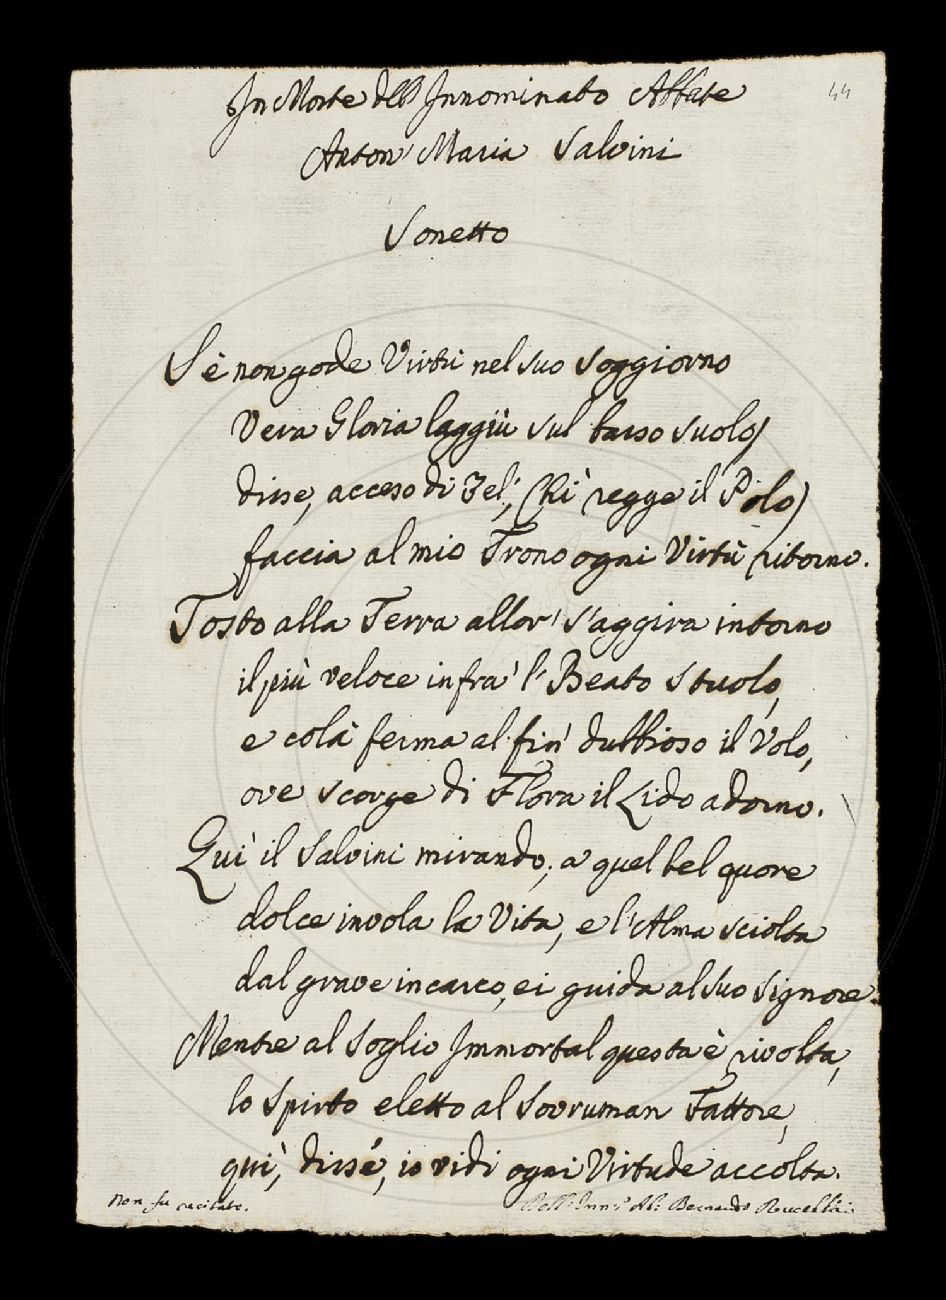 In Morte dell' Innominato Abbate
44
Anton' Maria Salvini
Sonetto
Sè non gode Virtù nel suo soggiorno
Vera Gloria laggiù sul basso suolo)
disse, acceso di Zel', (Chi regge il Polo)
faccia al mio Trono ogni Virtù ritorno.
Tosto alla Terra allor' s'aggira intorno
il più veloce infra' l' Beato Stuolo,
e colà ferma al fin' dubbioso il Volo,
ove scorge di Flora il Lido adorno.
Qui il Salvini mirando, a quel bel quore
dolce invola la Vita, e l'Alma sciolta
dal grave incarco, ei guida al suo Signore.
Mentre al Soglio Immortal questa è rivolta,
lo Spirto eletto al Sovruman Fattore,
qui, disse, io vidi ogni Virtude accolta.
Non fu recitato.
Dell' Inn: Ab: Bernardo Rucellai